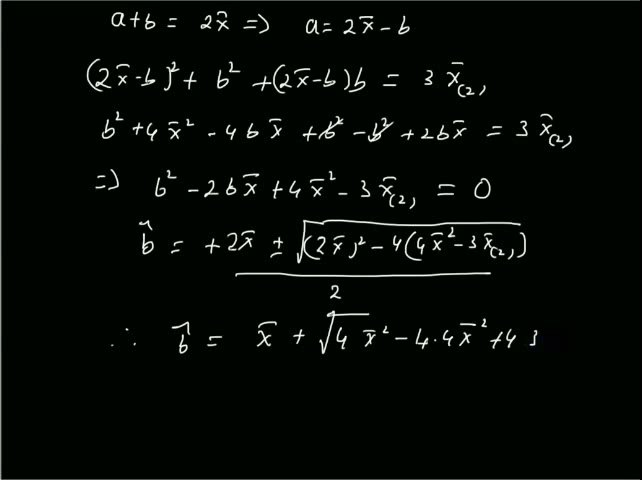 a+b = 2x̄ => a = 2x̄ - b
(2x̄-b)² + b² + (2x̄-b)b = 3 x̄₍₂₎
b² + 4x̄² - 4bx̄ + b² - b² + 2bx̄ = 3 x̄₍₂₎
=> b² - 2bx̄ + 4x̄² - 3x̄₍₂₎ = 0
b̂ = +2x̄ ± √((2x̄)² - 4(4x̄² - 3x̄₍₂₎))
2
∴ b̂ = x̄ + √4x̄² - 4.4x̄² + 4 3